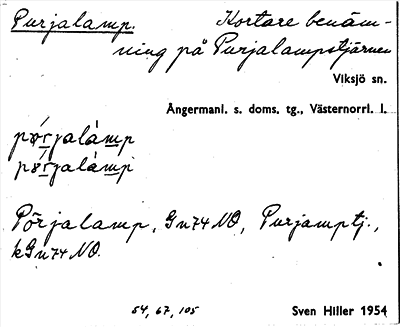 Purjalamp. Kortare benäm-
ning på Purjalampstjärnen
Viksjö sn.
Ångermanl. s. doms. tg., Västernorrl. l.
pørjalàmp
pørjalàmp
Pörjalamp, Gn74NO, Purjamptj.,
kGn74NO.
54, 67, 105 Sven Hiller 1954